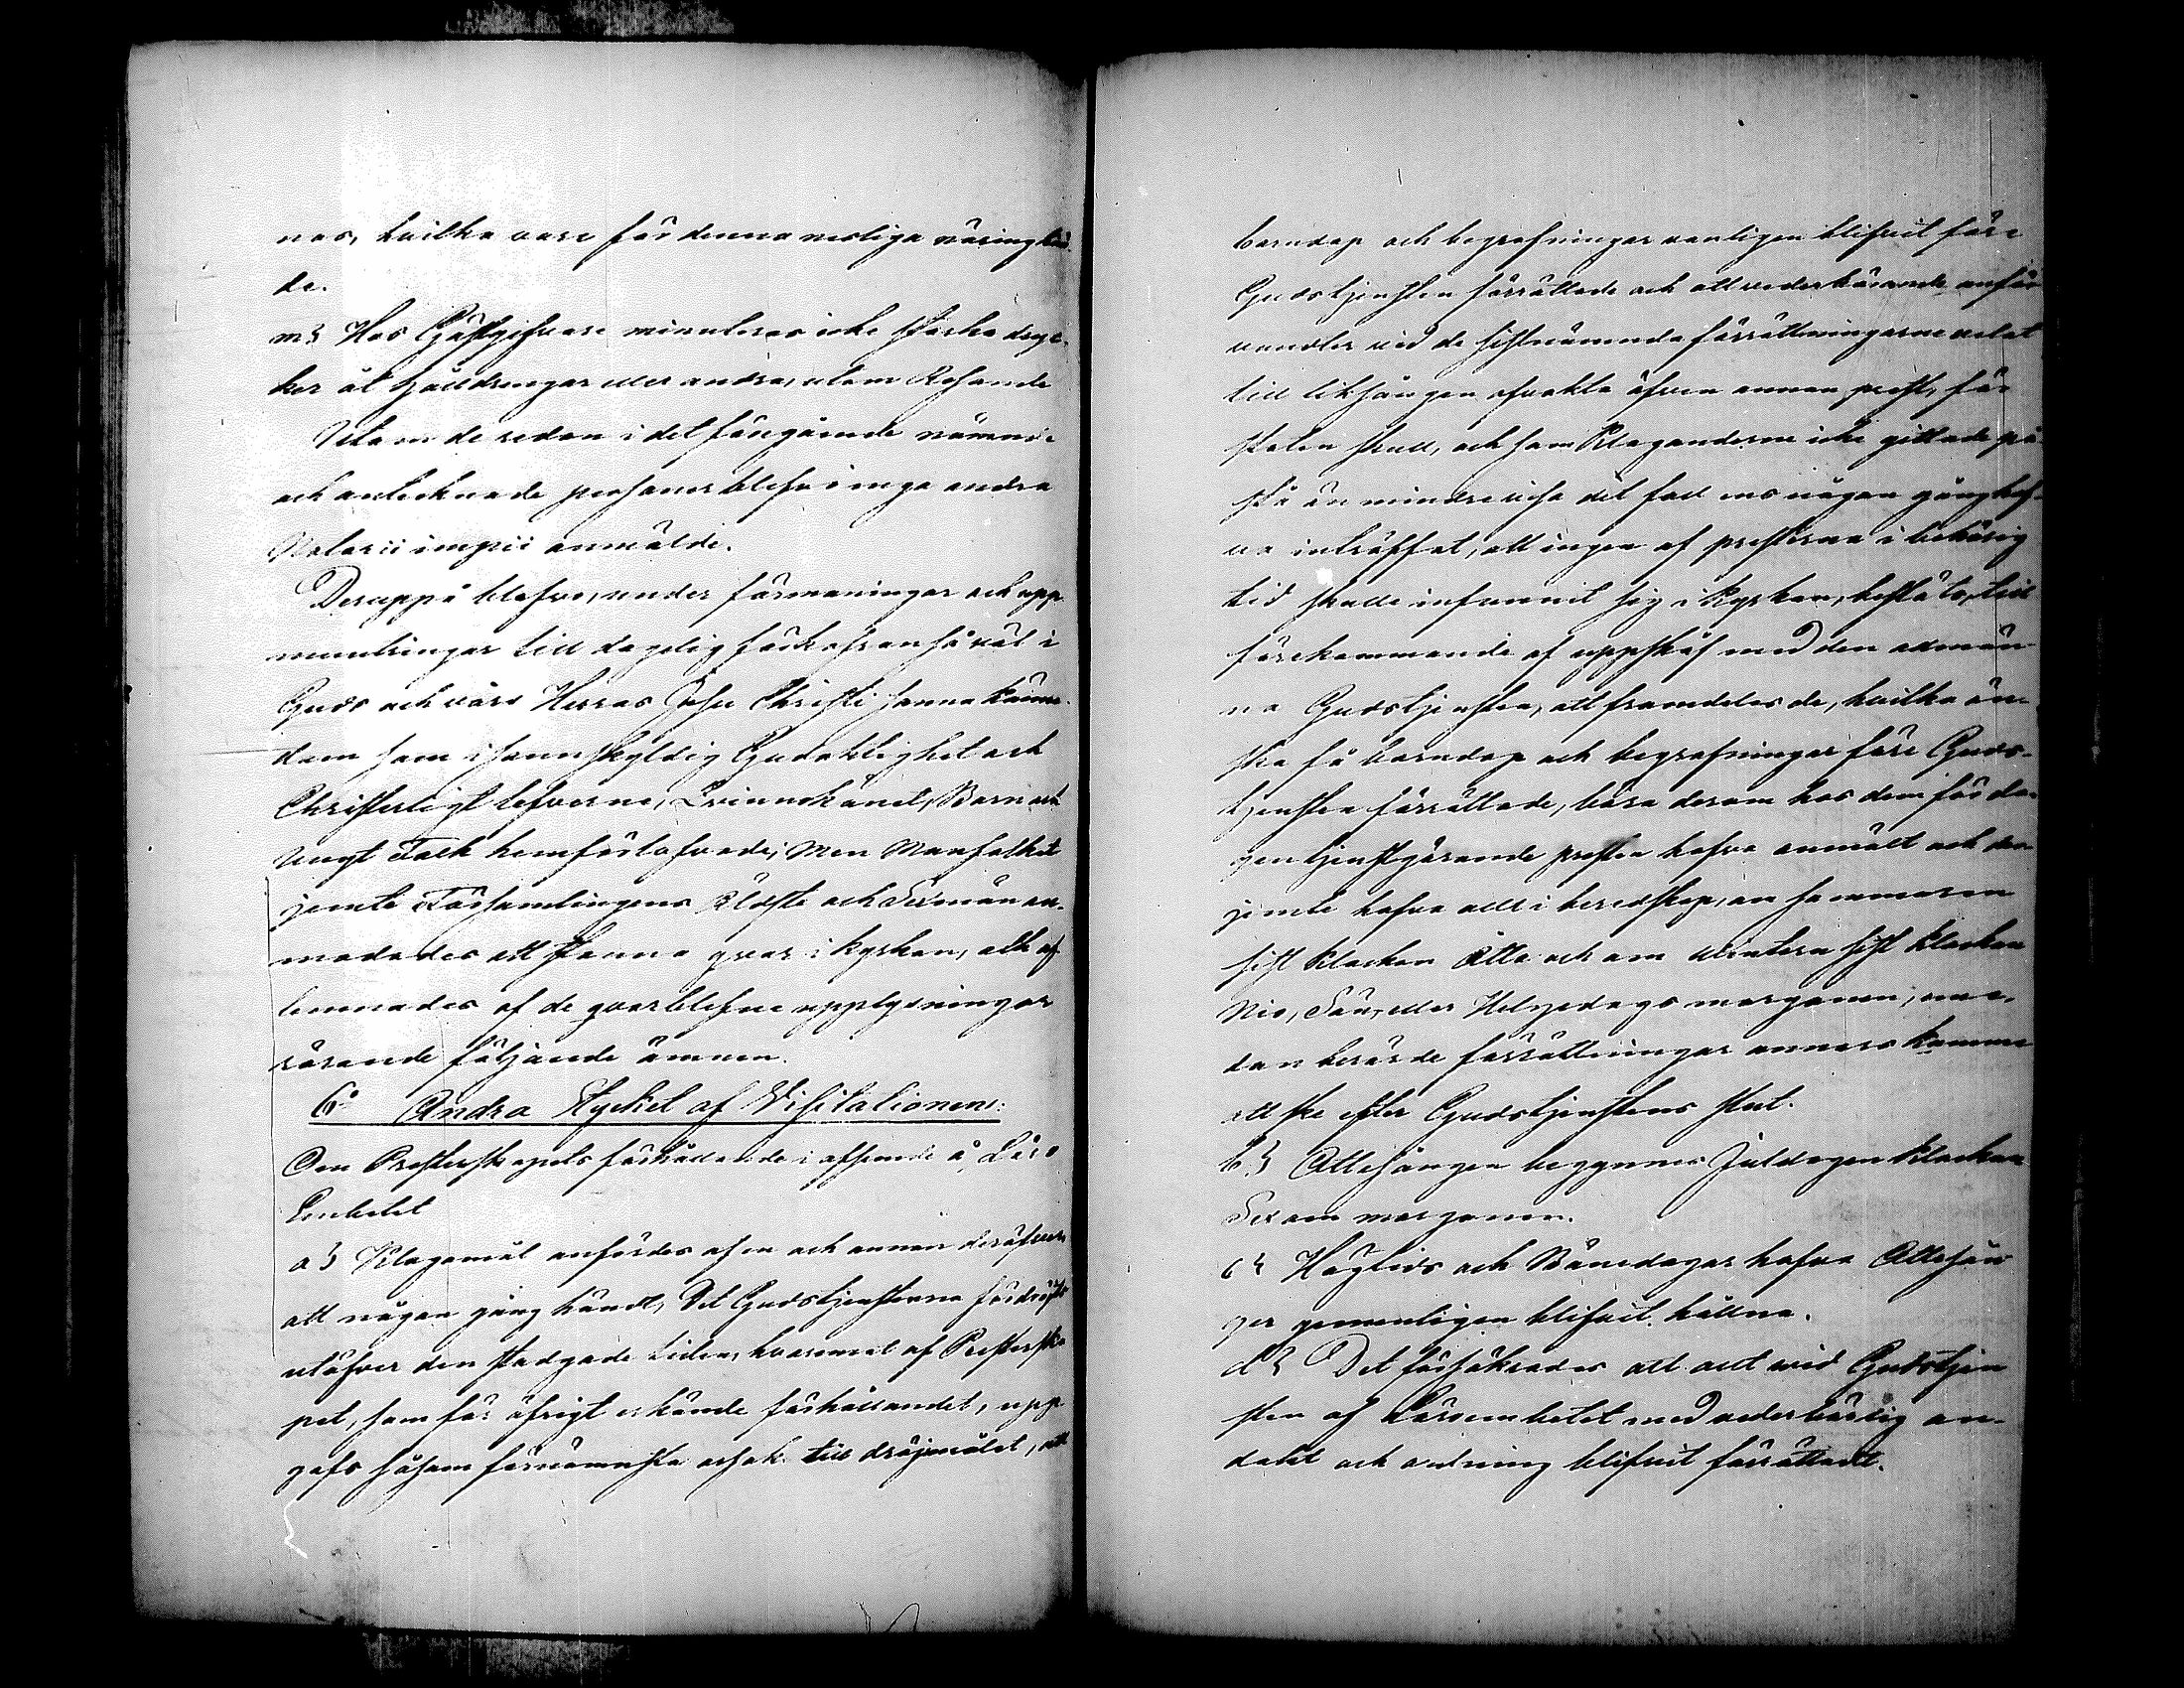 nas, hvilka vore för denna nesliga näring kän-
de.
m) Hos Gästgifvare minuteras icke starka dryc-
ker åt hålldrengar eller andra, utom Resande
Utom de redan i det föregående nämnde
och antecknade personer blefvo inga andra
Notorii impii anmälde.
Deruppå blefvo, under förmaningar och upp-
muntringar till daglig förkofran så väl i
Guds och vårs Herras Jesu Christi sanna känne-
dom som i sannskyldig Gudaktighet och
Christeligt lefverne, Qvinnokönet, Barn och
Ungt Folk hemförlofvade; Men Manfolket
jemte Församlingens Äldste och Sexmän an-
modades att stanna qvar i kyrkan, och af-
lemnades af de qvarblefne upplysningar
rörande följande ämnen.
6o Andra Stycket af Visitationen:
Om Presterskapets förhållande i afseende å Läro
Embetet
a) Klagomål anfördes af en och annan deröfver
att någon gång händt, Det Gudstjensterna fördröjts
utöfver den stadgade tiden, hvaremot af Presterska-
pet, som för öfrigt erkände förhållandet, upp-
gafs såsom förnämsta orsak till dröjsmålet, att
barndop och begrafningar vanligen blifvit före
Gudstjensten förrättade och att vederbörande anför-
vandter vid de sistnämnda förrättningarne velat
till liksången afvakta äfven annan prest, för
stolen skull, och som Klaganderne icke gittade på-
stå än mindre visa det fall ens någon gång haf-
va inträffat, att ingen af presterna i behörig
tid skulle infunnit sig i Kyrkan, bestöts, till
förekommande af uppskof med den allmän-
na Gudstjensten, att framdeles de, hvilka ön-
ska få barndop och begrafningar före Guds-
tjensten förrättade, böra derom hos den för da-
gen tjenstgörande presten hafva anmält och der-
jemte hafva allt i beredskap, om sommaren
sist klockan Åtta och om Vintern sist klockan
Nio, Sön- eller Helgedags morgonen, me-
dan berörde förrättningar annars komma
att ske efter Gudstjenstens slut.
b) Ottesången begynnes Juldagen klockan
Sex om morgonen.
c) Högtids och Bönedagar hafva Ottesån-
ger gemenligen blifvit hållna.
d) Det försäkrades att allt wid Gudstjen
sten af Läroembetet med vederbörlig an-
dakt och ordning blifvit förrättadt.